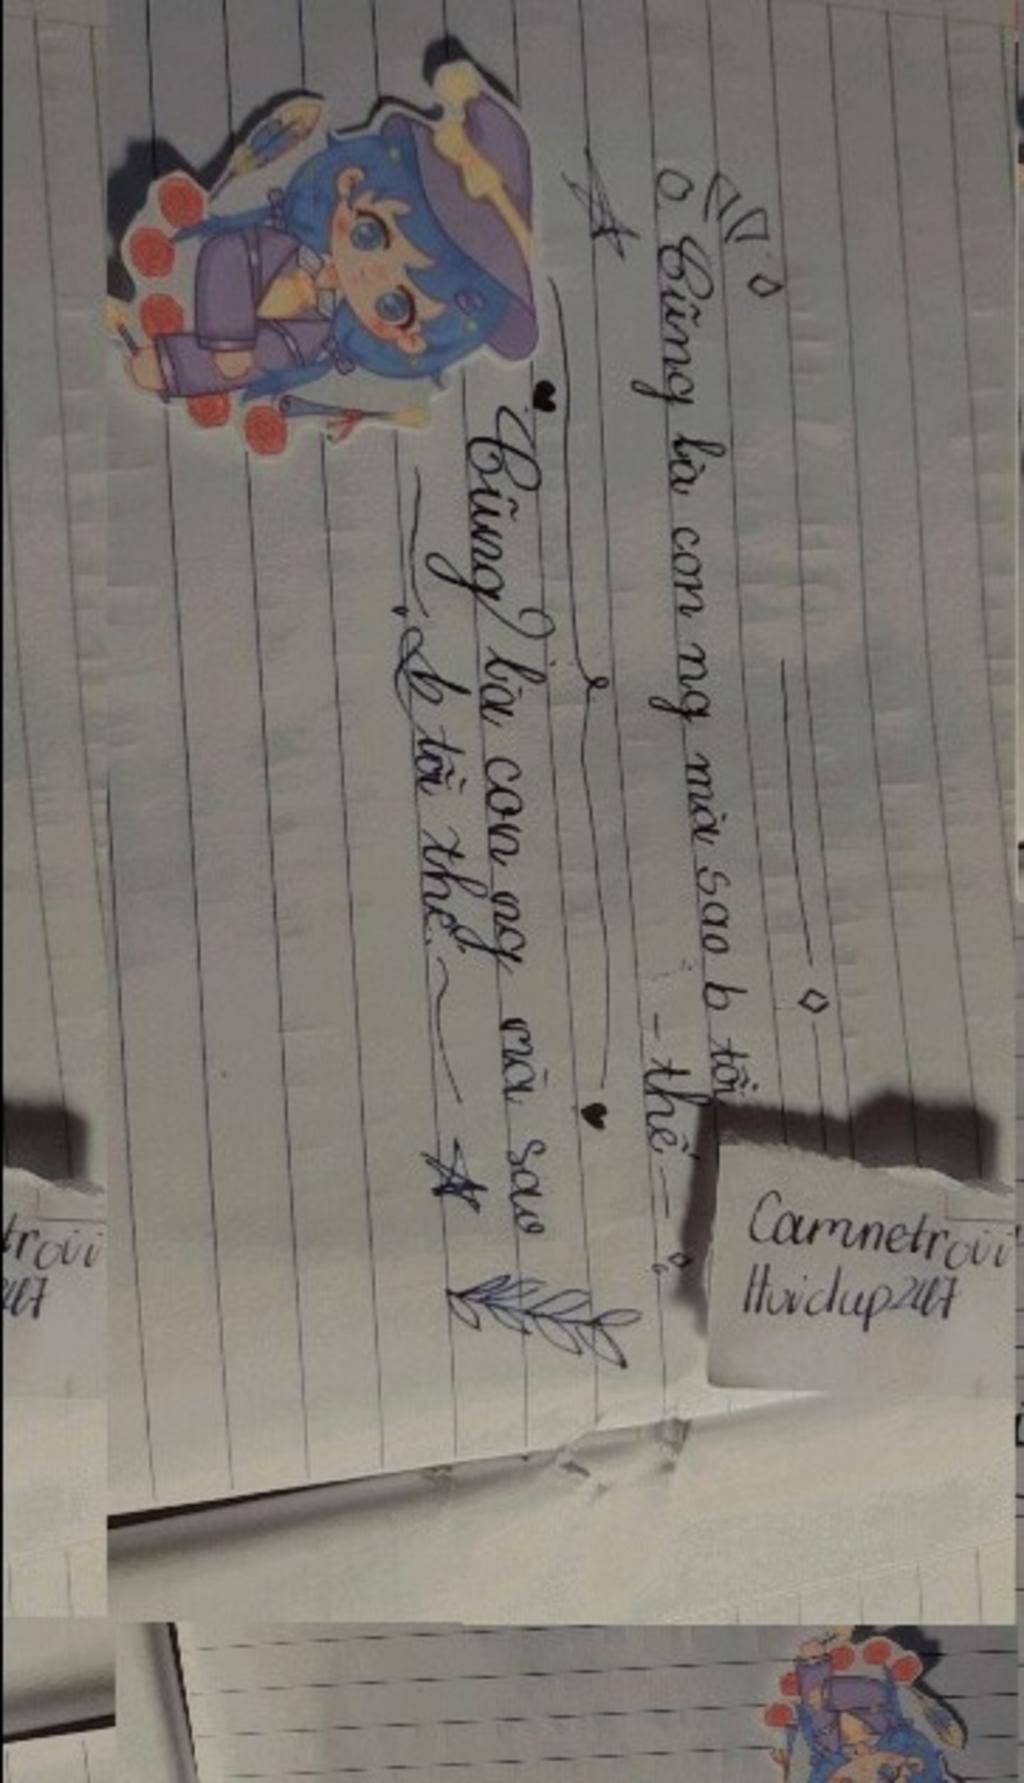 Cũng là con ng mà sao b tồi
- thế -
Cũng là con ng mà sao
b tồi thế.
Camnetroii
Hoidup247
troii
247